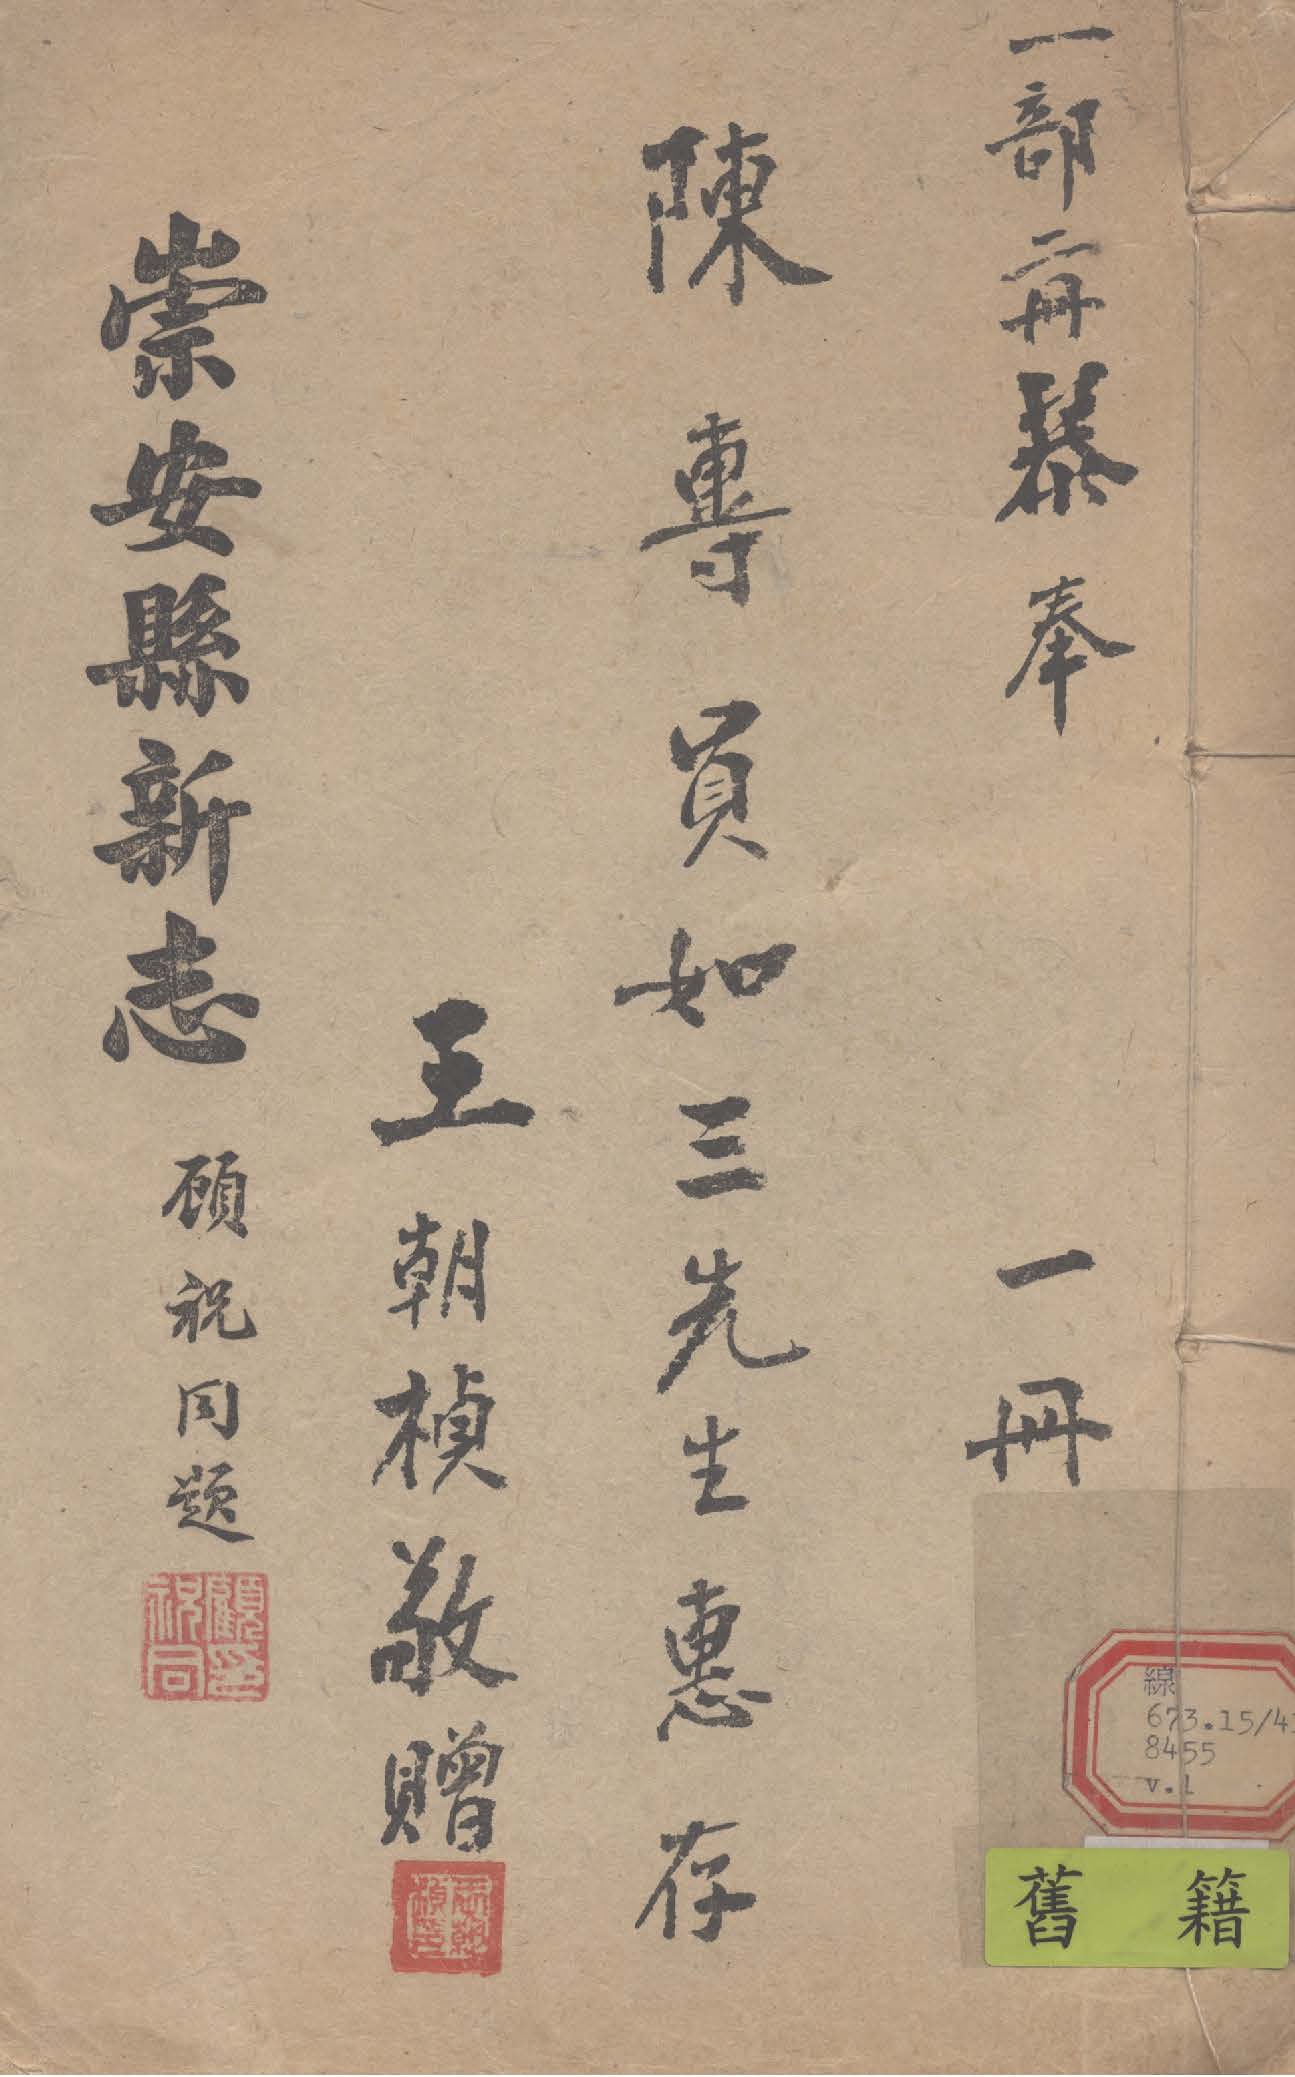 一部二冊 奉
一冊
陳專員如三先生惠存
王朝楨敬贈
崇安縣新志
顧祝同題
顧祝同印
線
673.15/4
8455
v.1
舊籍